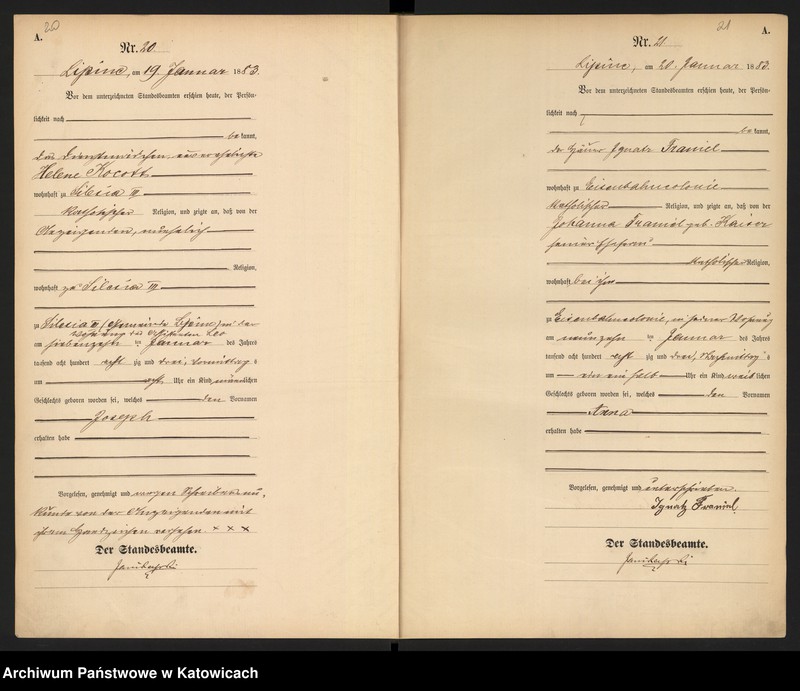 20
A.
Nr. 20
Lipine, am 19. Januar 1883.
Vor dem unterzeichneten Standesbeamten erschien heute, der Persön-
lichkeit nach
be kannt,
das Dienstmädchen unverehelichte
Helene Kocott
wohnhaft zu Silesia III
katholischer Religion, und zeigte an, daß von der
Anzeigenden, unehelich
Religion,
wohnhaft zu Silesia III
zu Silesia II Gemeinde Lipine, in der
Wohnung des
am siebenzehn ten Januar des Jahres
tausend acht hundert acht zig und drei, Vormittag s
um acht Uhr ein Kind männlichen
Geschlechts geboren worden sei, welches den Vornamen
Joseph
erhalten habe
Vorgelesen, genehmigt und wegen Schreibensun-
kunde von der Anzeigenden mit
ihrem Handzeichen versehen. x x x
Der Standesbeamte.
21
A.
Nr. 21
Lipine, am 20. Januar 1883.
Vor dem unterzeichneten Standesbeamten erschien heute, der Persön-
lichkeit nach
be kannt,
der Häuer Ignatz Franiel
wohnhaft zu Eisenbahncolonie
katholischer Religion, und zeigte an, daß von der
Johanna Franiel geb. Kaiser
seiner Ehefrau
katholischer Religion,
wohnhaft bei ihm
zu Eisenbahncolonie, in seiner Wohnung
am neunzehn ten Januar des Jahres
tausend acht hundert acht zig und drei, Nachmittag s
um ein ein halb Uhr ein Kind weib lichen
Geschlechts geboren worden sei, welches den Vornamen
Anna
erhalten habe
Vorgelesen, genehmigt und unterschrieben.
Ignatz Franiel.
Der Standesbeamte.
Archiwum Państwowe w Katowicach